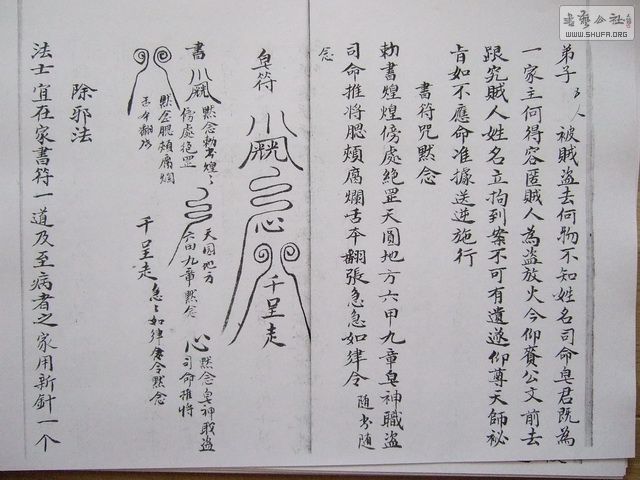 弟子 某人 被賊盜去何物不知姓名司命皂君既為
一家主何得容匿賊人為盜放火今仰賫公文前去
跟究賊人姓名立拘到案不可有遺遂仰尊天師祕
肯如不應命准據送逆施行
書符咒默念
勅書煌煌傍處絶罡天圓地方六甲九章皂神職盜
司命推将腮頰腐爛舌本翻張急急如律令 随書随
念
皂符
心
千呈走
書
默念勅書煌々
傍處绝罡
天圓地方
六甲九章默念
心
默念皂神戝盗
司命推将
默念腮頰腐爛
舌本翻張
千呈走
急々如律令默念
除邪法
法士宜在家書符一道及至病者之家用新針一个
书艺公社
WWW.SHUFA.ORG